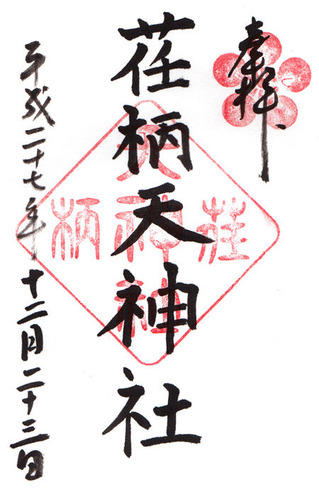 奉拝
荏柄天神社
平成二十七年十二月二十三日
荏柄天神社